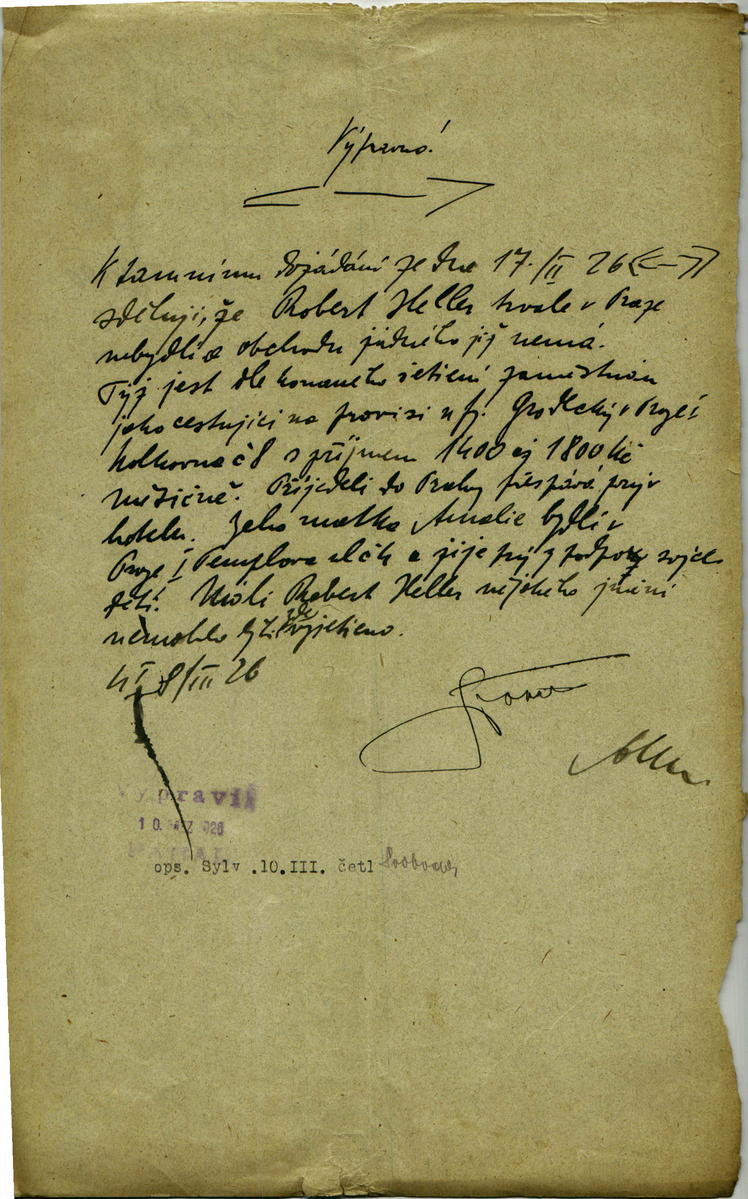 Výpravno!
K tamnímu dožádání ze dne 17/II 26
sděluji, že Robert Heller trvale v Praze
nebydlí a obchodu žádného již nemá.
Týž jest dle konaného šetření zaměstnán
jako cestující na provisi u fy. Grodecký v Praze I
Kolkovna č 8 s příjmem 1400 až 1800 Kč
měsíčně. Přijede-li do Prahy přespává prý v
hotelu. Jeho matka Amalie bydlí v
Praze I Templova ul čk a žije prý z podpory svých
dětí. Má-li Robert Heller nějakého jmění
nemohlo býti zde zjištěno.
8/III 26
Vypravil
10. 1926
ops. Sylv .10.III. četl Svoboda